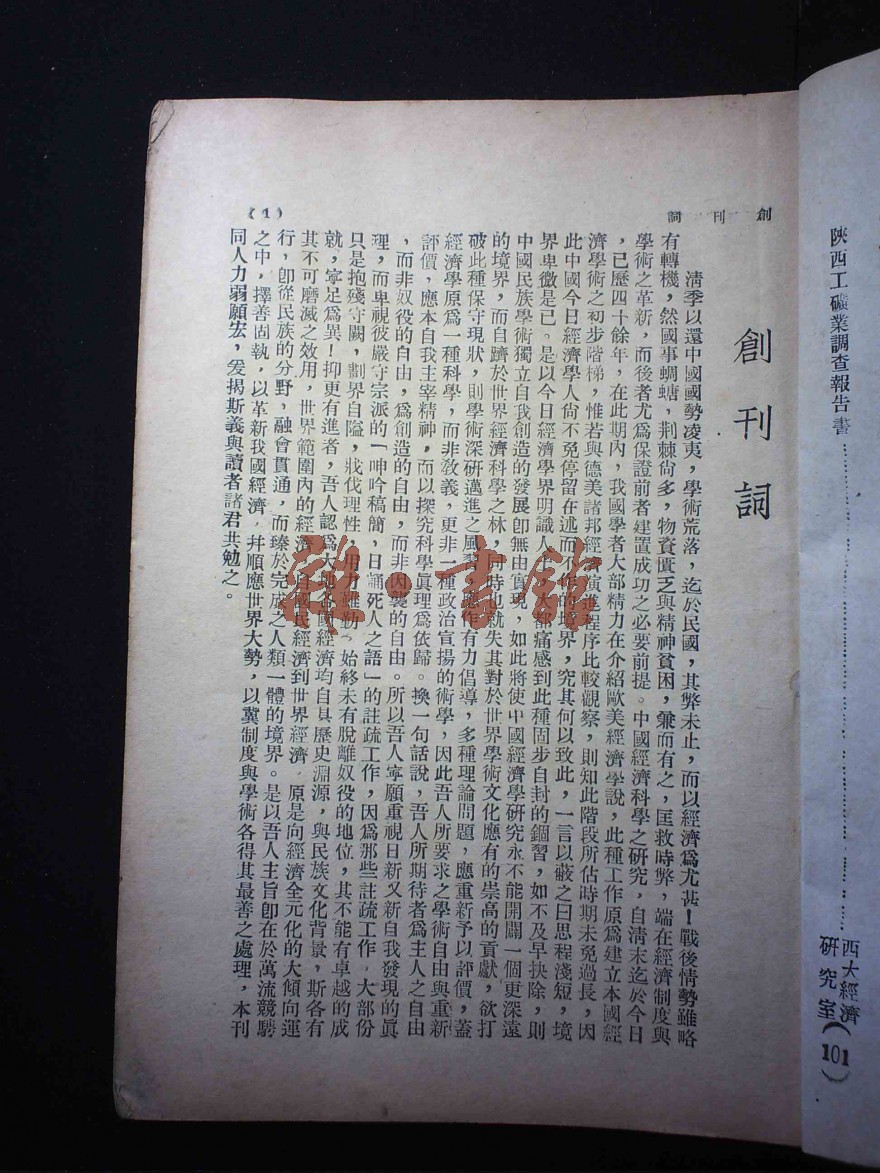 陝西工礦業調查報告書
西大經濟
研究室(101)
創刊詞
創刊詞
清季以還中國國勢凌夷，學術荒落，迄於民國，其弊未止，而以經濟爲尤甚！戰後情勢雖略
有轉機，然國事蜩螗，荆棘尙多，物資匱乏與精神貧困，兼而有之，匡救時弊，端在經濟制度與
學術之革新，而後者尤爲保證前者建置成功之必要前提。中國經濟科學之研究，自清末迄於今日
，已歷四十餘年，在此期內，我國學者大部精力在介紹歐美經濟學說，此種工作原爲建立本國經
濟學術之初步階梯，惟若與德美諸邦經濟演進程序比較觀察，則知此階段所佔時期未免過長，因
此中國今日經濟學人尙不免停留在述而不作的境界，究其何以致此，一言以蔽之曰思程淺短，境
界卑微是已。是以今日經濟學界明識人士都痛感到此種固步自封的錮習，如不及早抉除，則
中國民族學術獨立自我創造的發展卽無由實現，如此將使中國經濟學研究永不能開闢一個更深遠
的境界，而自躋於世界經濟科學之林，同時也就失其對於世界學術文化應有的崇高的貢獻，欲打
破此種保守現狀，則學術深研邁進之風習應作有力倡導，多種理論問題，應重新予以評價，蓋
經濟學原爲一種科學，而非教義，更非一種政治宣揚的術學，因此吾人所要求之學術自由與重新
評價，應本自我主宰精神，而以探究科學眞理爲依歸。換一句話說，吾人所期待者爲主人之自由
，而非奴役的自由，爲創造的自由，而非因襲的自由。所以吾人寧願重視日新又新自我發現的眞
理，而卑視彼嚴守宗派的「呻吟稿簡，日誦死人之語」的註疏工作，因爲那些註疏工作，大部份
只是抱殘守闕，劃界自隘，戕伐理性，用力雖勤，始終未有脫離奴役的地位，其不能有卓越的成
就，寧足爲異！抑更有進者，吾人認爲大地各國經濟均自具歷史淵源，與民族文化背景，斯各有
其不可磨滅之效用，世界範圍內的經濟自國民經濟到世界經濟，原是向經濟全元化的大傾向運
行，卽從民族的分野，融會貫通，而臻於完成之人類一體的境界。是以吾人主旨卽在於萬流競騁
之中，擇善固執，以革新我國經濟，幷順應世界大勢，以冀制度與學術各得其最善之處理，本刊
同人力弱願宏，爰揭斯義與讀者諸君共勉之。
(1)
雜·書館